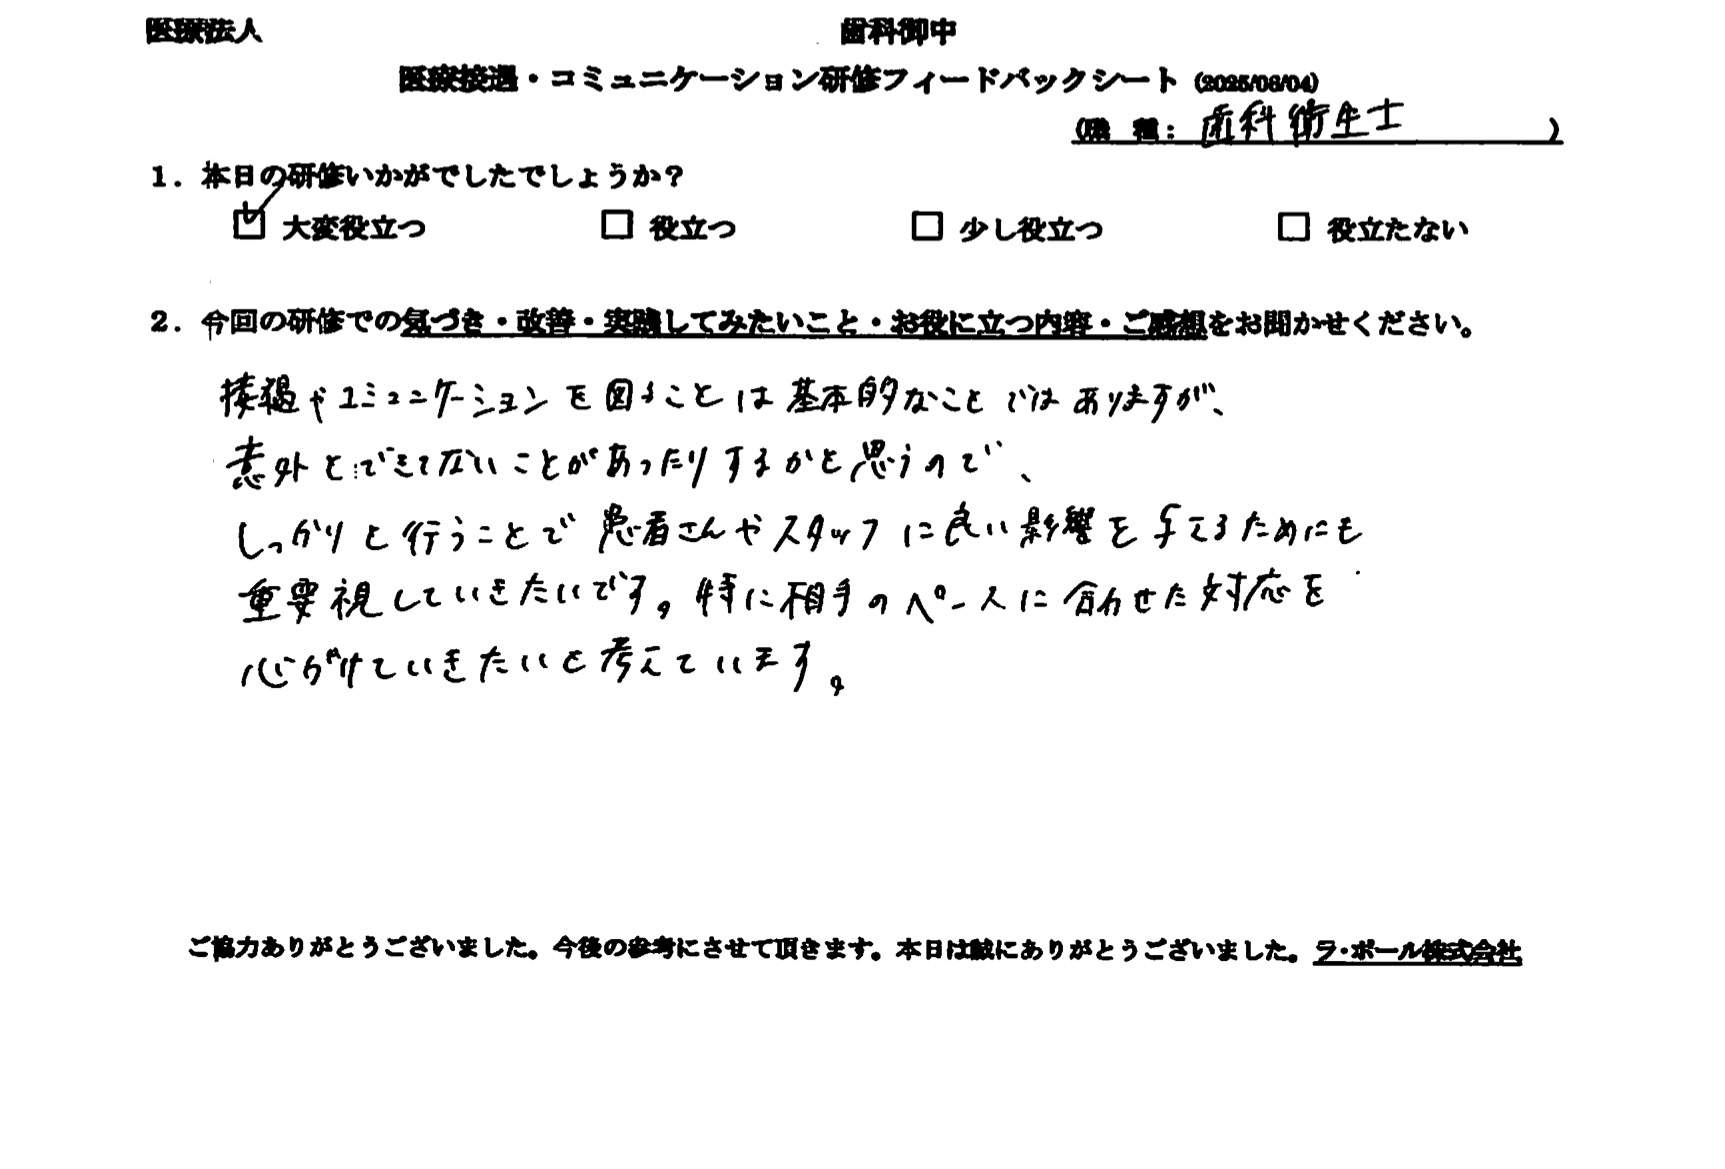 医療法人 歯科御中
医療接遇・コミュニケーション研修フィードバックシート (2025/06/04)
(職 種: 歯科衛生士 )
1. 本日の研修いかがでしたでしょうか?
☑ 大変役立つ □ 役立つ □ 少し役立つ □ 役立たない
2. 今回の研修での気づき・改善・実践してみたいこと・お役に立つ内容・ご感想をお聞かせください。
接遇やコミュニケーションを図ることは基本的なことではありますが、
意外とできてないことがあったりするかと思うので、
しっかりと行うことで患者さんやスタッフに良い影響を与えるためにも
重要視していきたいです。特に相手のペースに合わせた対応を
心がけていきたいと考えています。
ご協力ありがとうございました。今後の参考にさせて頂きます。本日は誠にありがとうございました。ラ・ポール株式会社